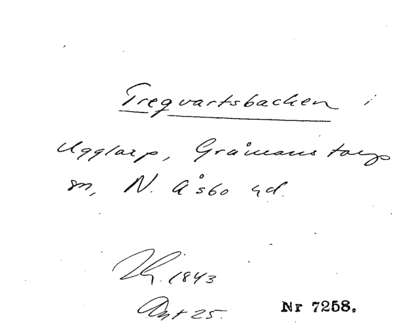 Treqvartsbacken i
Ugglarp, Gråmanstorps
sn, N. Åsbo hd.
1843
Ant 25.
Nr 7258.